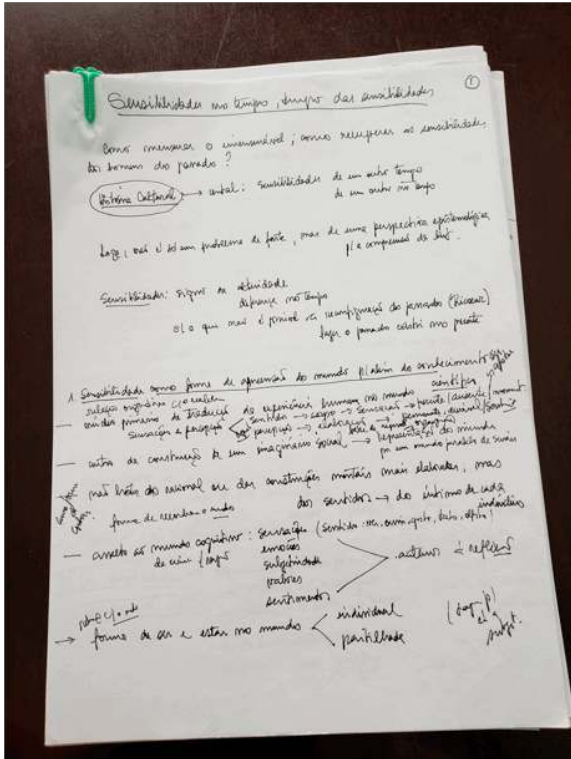 1
Sensibilidades no tempo, tempo das sensibilidades
Como mensurar o imensurável, como recuperar as sensibilidades
dos homens do passado?
História Cultural → sensibilidades de um outro tempo
de um outro no tempo
Logo, não é só um problema de fonte, mas de uma perspectiva epistemológica
p/ a compreensão da
Sensibilidades: signo da alteridade
diferença no tempo
o que não é possível reconfiguração do passado (Ricoeur)
do passado no presente
1. Sensibilidade como forma de apreensão do mundo p/ além do conhecimento científico
relação originária c/ a realidade
— primário de tradução da experiência humana no mundo
sensações e percepção
sentidos → corpo → sensação → presente
percepção → elaboração
— outra de construção de um imaginário social → representação do mundo
por um mundo paralelo de sinais
não do racional ou das construções mentais mais elaboradas, mas
dos sentidos → do íntimo de cada
indivíduo
forma de reconhecer o mundo
— mundo cognitivo: sensações (sentidos: ouvir, gosto, tato, olfato)
emoções
subjetividade
valores
sentimentos
anterior à reflexão
→ forma de ser e estar no mundo
individual
partilhada